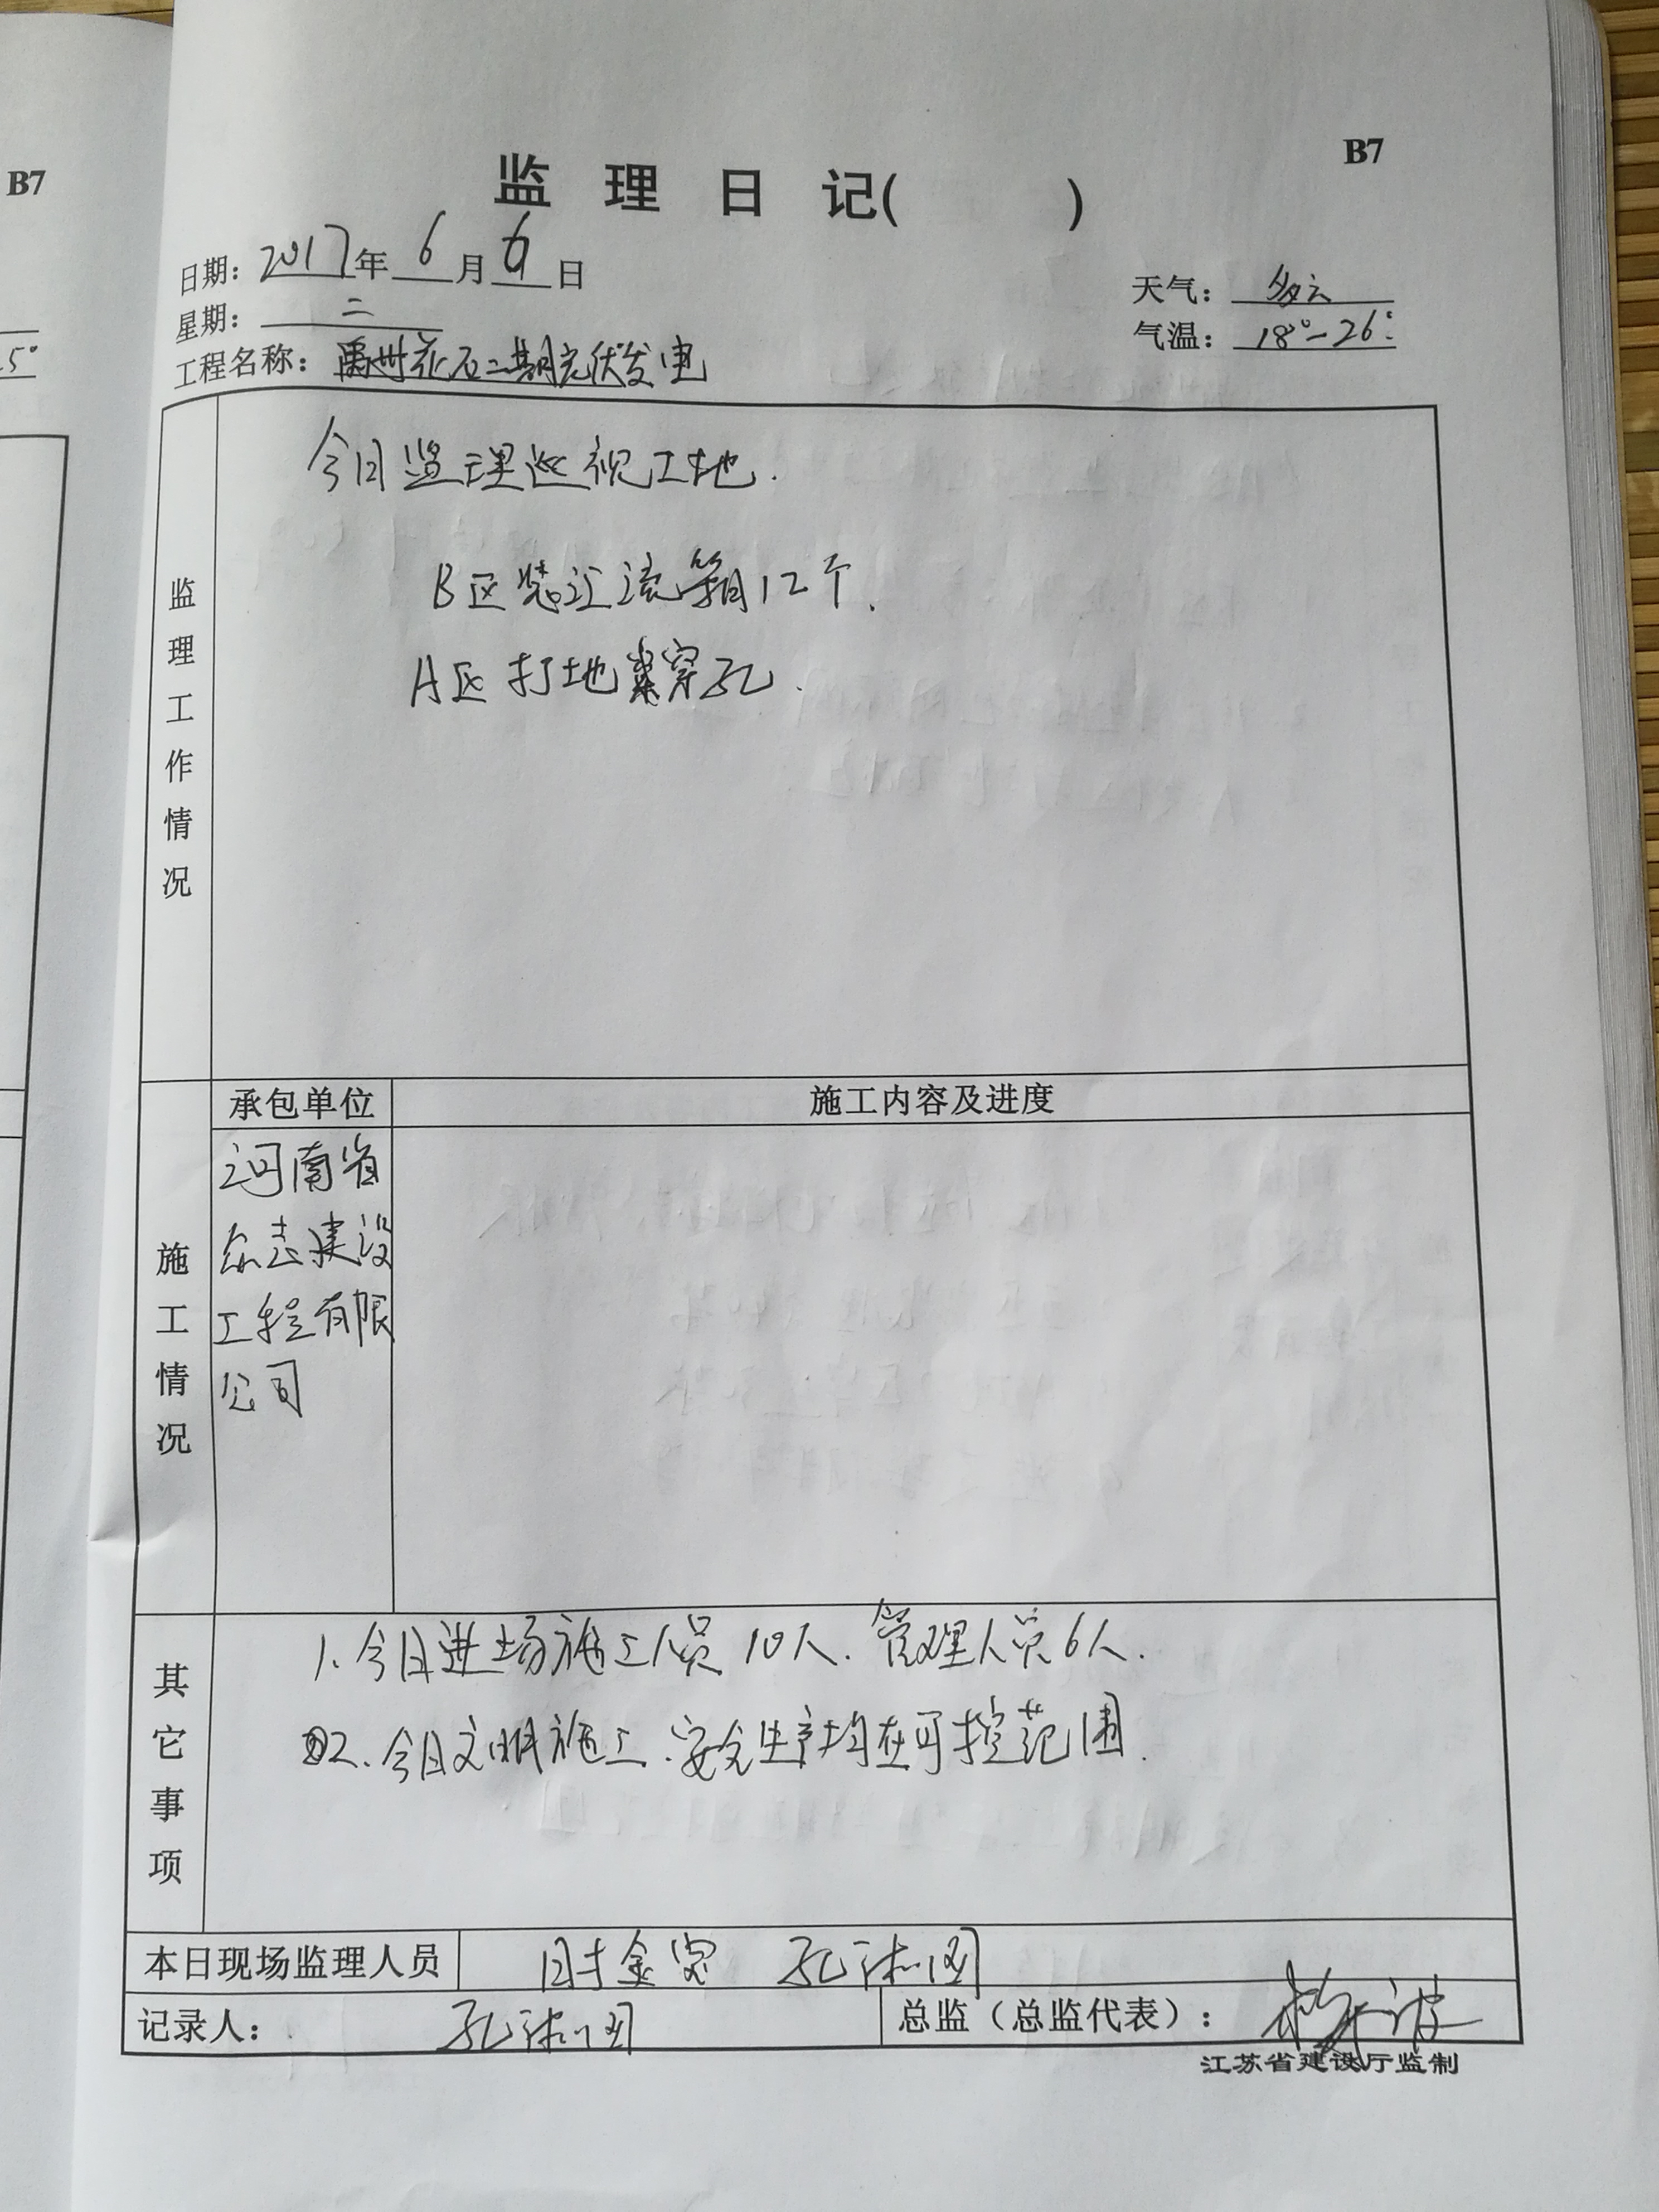 B7
B7
监 理 日 记(　　　)
日期：2017年 6 月 6 日
天气：多云
星期：二
气温：18°-26°
工程名称：禹州花石二期光伏发电
5°
监理工作情况
今日监理巡视工地.
B区装汇流箱12个.
A区打地桩穿孔.
施工情况
承包单位
施工内容及进度
河南省
众志建设
工程有限
公司
其它事项
1、今日进场施工人员10人.管理人员6人.
2、今日文明施工、安全生产均在可控范围.
本日现场监理人员
记录人：
总监（总监代表）：
江苏省建设厅监制